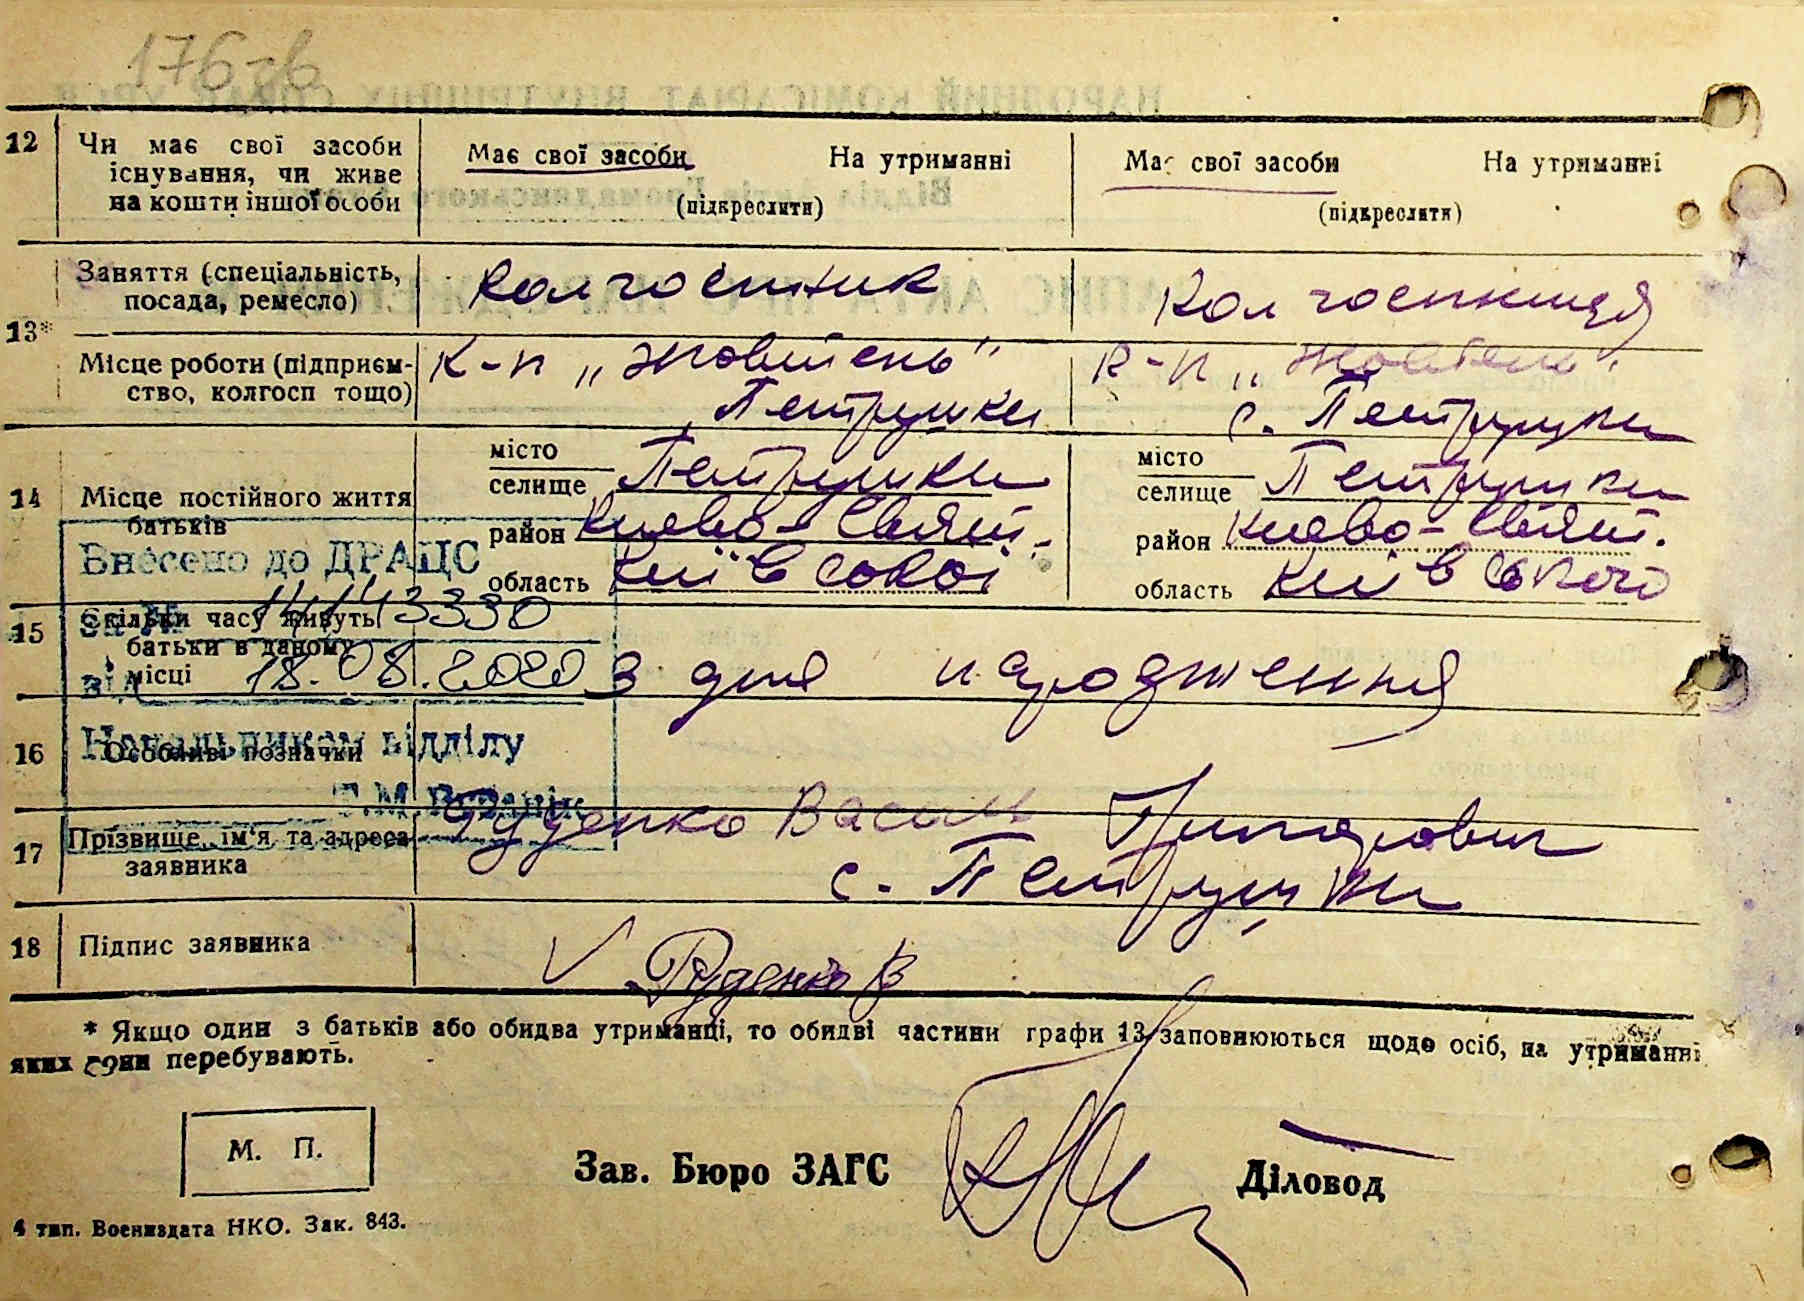 176зв
12 Чи має свої засоби існування, чи живе на кошти іншої особи
Має свої засоби На утриманні
(підкреслити)
Має свої засоби На утриманні
(підкреслити)
13*
Заняття (спеціальність,
посада, ремесло)
Колгоспник
Колгоспниця
Місце роботи (підприєм-
ство, колгосп тощо)
К-п „Жовтень"
Петрушки
К-п „Жовтень"
с. Петрушки
14 Місце постійного життя
батьків
місто
селище Петрушки
район Києво-Свят.
область Київської
місто
селище Петрушки
район Києво-Свят.
область Київської
Внесено до ДРАЦС
за № 14143330
від 18.08.2020
Начальником відділу
15 Скільки часу живуть
батьки в даному
місці
З дня народження
16 Особливі позначки
17 Прізвище, ім'я та адреса
заявника
Руденко Василь
с. Петрушки
18 Підпис заявника
Руденко В
* Якщо один з батьків або обидва утриманці, то обидві частини графи 13 заповнюються щодо осіб, на утриманні
яких вони перебувають.
М. П.
Зав. Бюро ЗАГС
Діловод
4 тип. Воениздата НКО. Зак. 843.